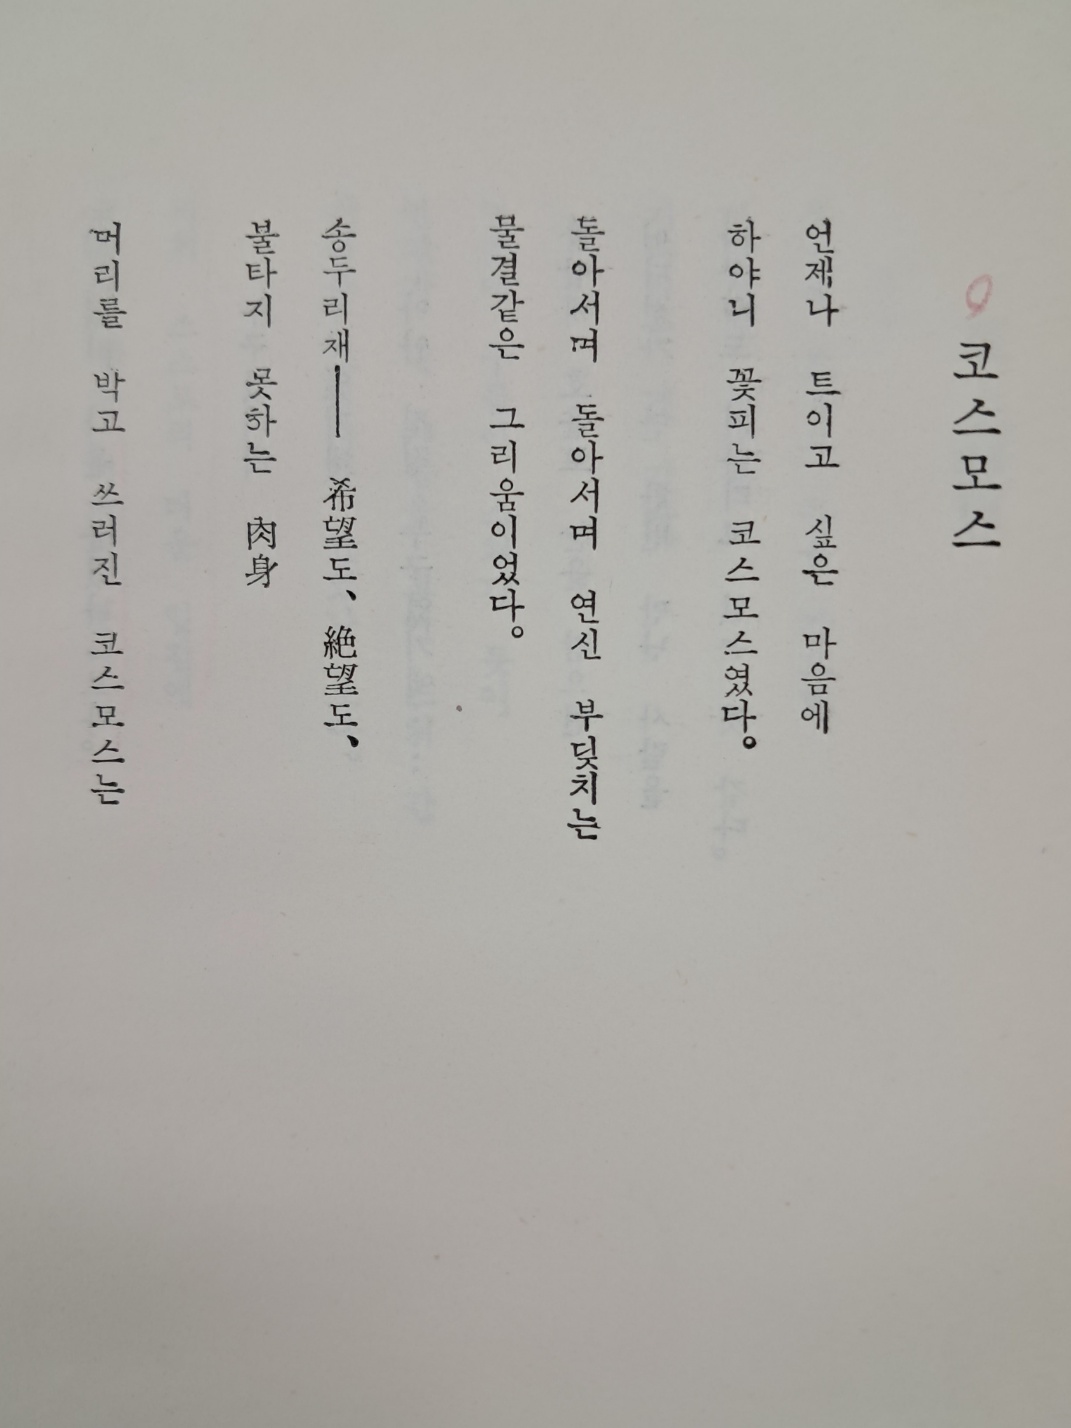 코스모스
언제나 트이고 싶은 마음에
하야니 꽃피는 코스모스였다。
돌아서며 돌아서며 연신 부딪치는
물결같은 그리움이었다。
송두리재——希望도、絶望도、
불타지 못하는 肉身
머리를 박고 쓰러진 코스모스는